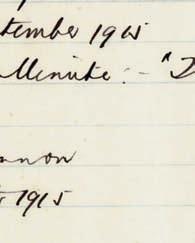 tember 1915
Minute:- "D
nnon
1915